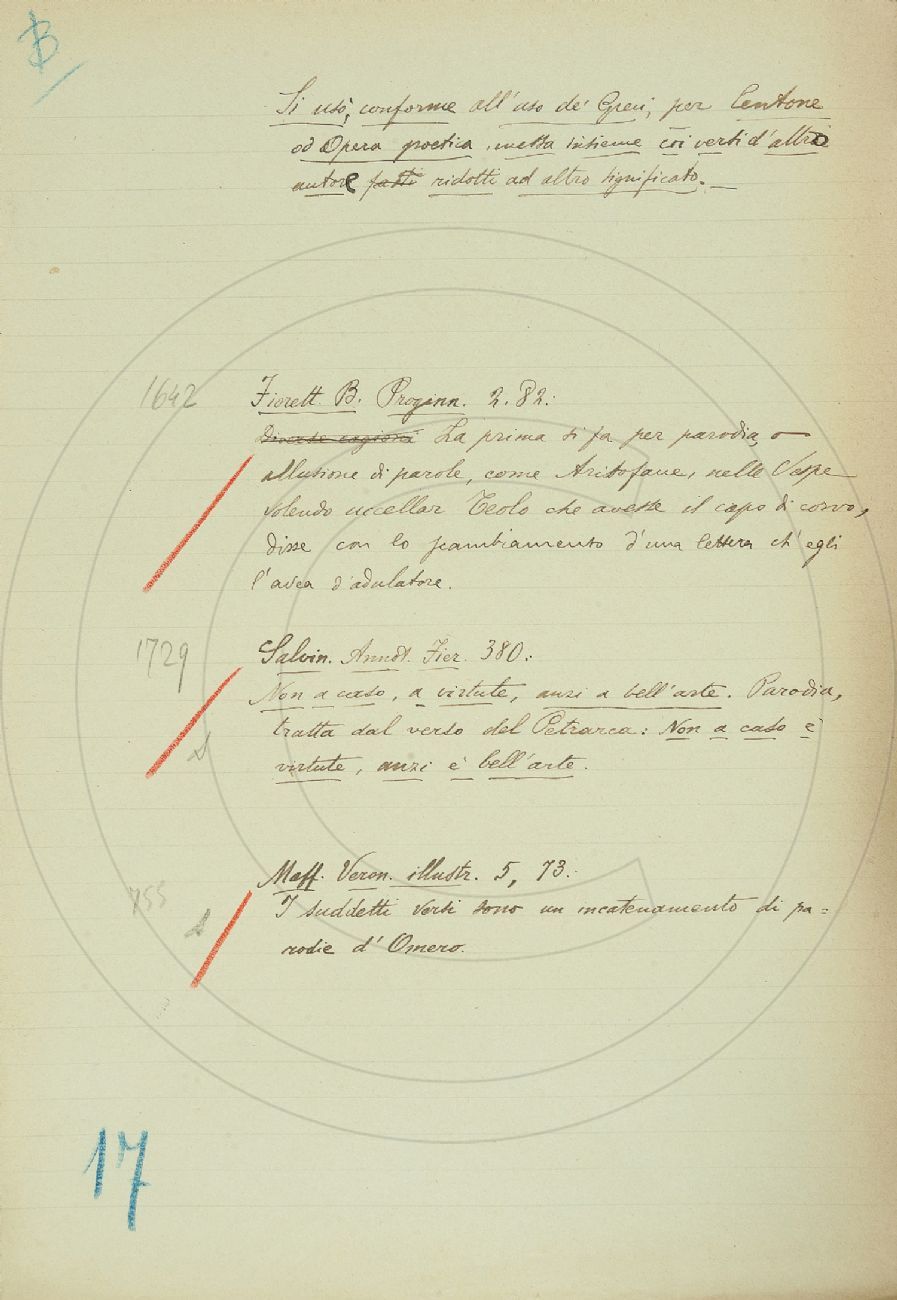 B
Si usò, conforme all'uso de' Greci, per Centone
od Opera poetica, messa insieme coi versi d'altro
autore fatti ridotti ad altro significato. _
1642
Fiorett. B. Proginn. 2. 82:
diverse cagioni La prima si fa per parodia, o
allusione di parole, come Aristofane, nelle Vespe
volendo uccellar Teolo che avesse il capo di corvo,
disse con lo scambiamento d'una lettera ch'egli
l'avea d'adulatore.
1729
Salvin. Annot. Fier. 380:
Non a caso, a virtute, anzi a bell'arte. Parodia,
tratta dal verso del Petrarca: Non a caso è
virtute, anzi è bell'arte.
755
Maff. Veron. illustr. 5, 73:
I suddetti versi sono un incatenamento di pa=
rodie d'Omero.
17